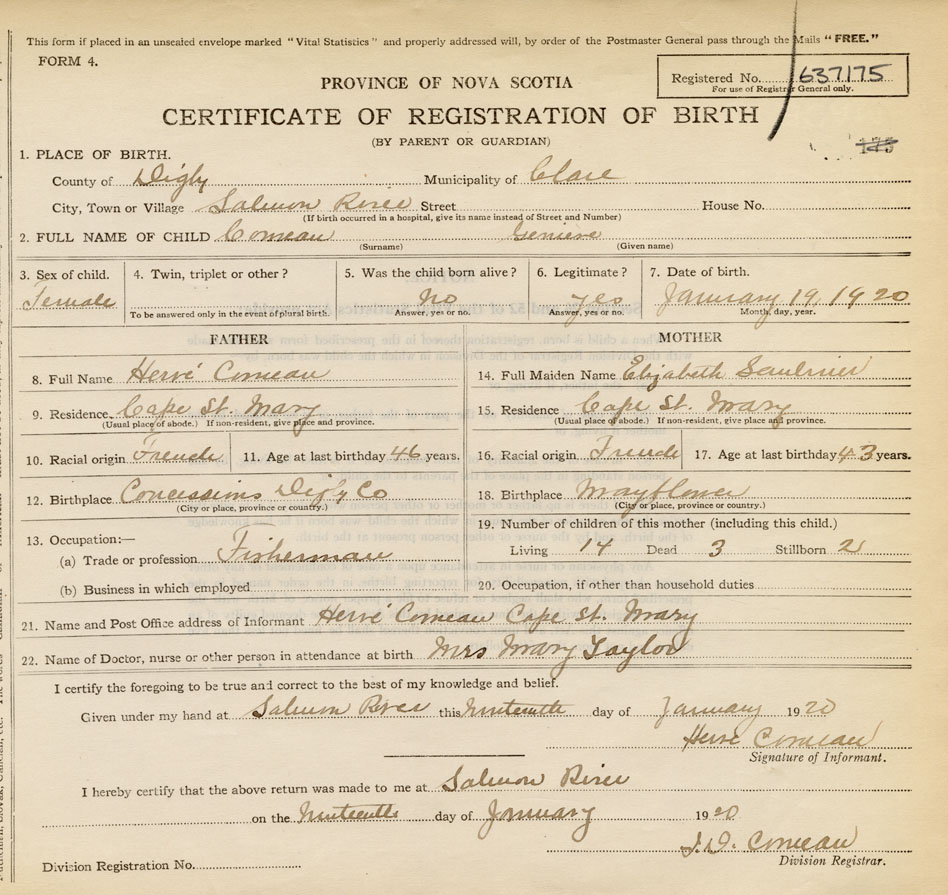 This form if placed in an unsealed envelope marked "Vital Statistics" and properly addressed will, by order of the Postmaster General pass through the Mails "FREE."
FORM 4.
Registered No. 637175
For use of Registrar General only.
PROVINCE OF NOVA SCOTIA
CERTIFICATE OF REGISTRATION OF BIRTH
(BY PARENT OR GUARDIAN)
175
1. PLACE OF BIRTH.
County of Digby Municipality of Clare
City, Town or Village Salmon River Street House No.
(If birth occurred in a hospital, give its name instead of Street and Number)
2. FULL NAME OF CHILD Comeau
(Surname) (Given name)
3. Sex of child. 4. Twin, triplet or other? 5. Was the child born alive? 6. Legitimate? 7. Date of birth.
Female No yes January 19, 1920
To be answered only in the event of plural birth. Answer, yes or no. Answer, yes or no. Month, day, year.
FATHER MOTHER
8. Full Name Hervé Comeau 14. Full Maiden Name Elizabeth Saulnier
9. Residence. Cape St. Mary 15. Residence Cape St. Mary
(Usual place of abode.) If non-resident, give place and province. (Usual place of abode.) If non-resident, give place and province.
10. Racial origin French 11. Age at last birthday 46 years. 16. Racial origin French 17. Age at last birthday 43 years.
12. Birthplace Concessions Digby Co 18. Birthplace Mayflower
(City or place, province or country.) (City or place, province or country.)
19. Number of children of this mother (including this child.)
13. Occupation:—
(a) Trade or profession Fisherman Living 14 Dead 3 Stillborn 2
(b) Business in which employed 20. Occupation, if other than household duties
21. Name and Post Office address of Informant Hervé Comeau Cape St. Mary
22. Name of Doctor, nurse or other person in attendance at birth Mrs Mary Taylor
I certify the foregoing to be true and correct to the best of my knowledge and belief.
Given under my hand at Salmon River this nineteenth day of January 1920
Hervé Comeau
Signature of Informant.
I hereby certify that the above return was made to me at Salmon River
on the nineteenth day of January 1920
Comeau
Division Registrar.
Division Registration No.